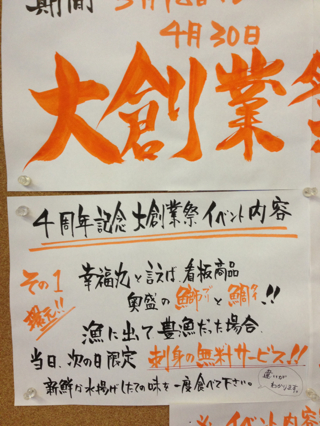 期間
4月30日
大創業祭
4周年記念 大創業祭 イベント内容
その1 幸福丸と言えば、看板商品
還元!! 奥盛の鰤ブリと鯛タイ!!
漁に出て豊漁だった場合、
当日、次の日限定 刺身の無料サービス!!
新鮮な水揚げしたての味を一度食べて下さい。
違いがわかります。
イベント内容